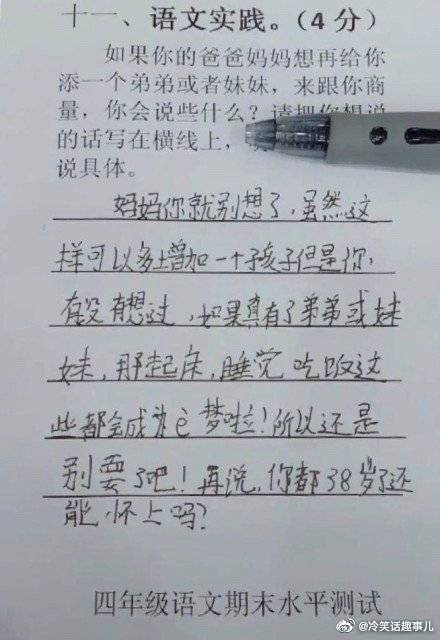 十一、语文实践。(4分)
如果你的爸爸妈妈想再给你
添一个弟弟或者妹妹，来跟你商
量，你会说些什么？请把你想说
的话写在横线上，
说具体。
妈妈你就别想了，虽然这
样可以多增加一个孩子但是你，
有没有想过，如果真有了弟弟或妹
妹，那起床，睡觉 吃饭这
些都会成为亡梦啦！所以还是
别要了吧！再说，你都38岁了还
能怀上吗？
四年级语文期末水平测试
@冷笑话趣事儿